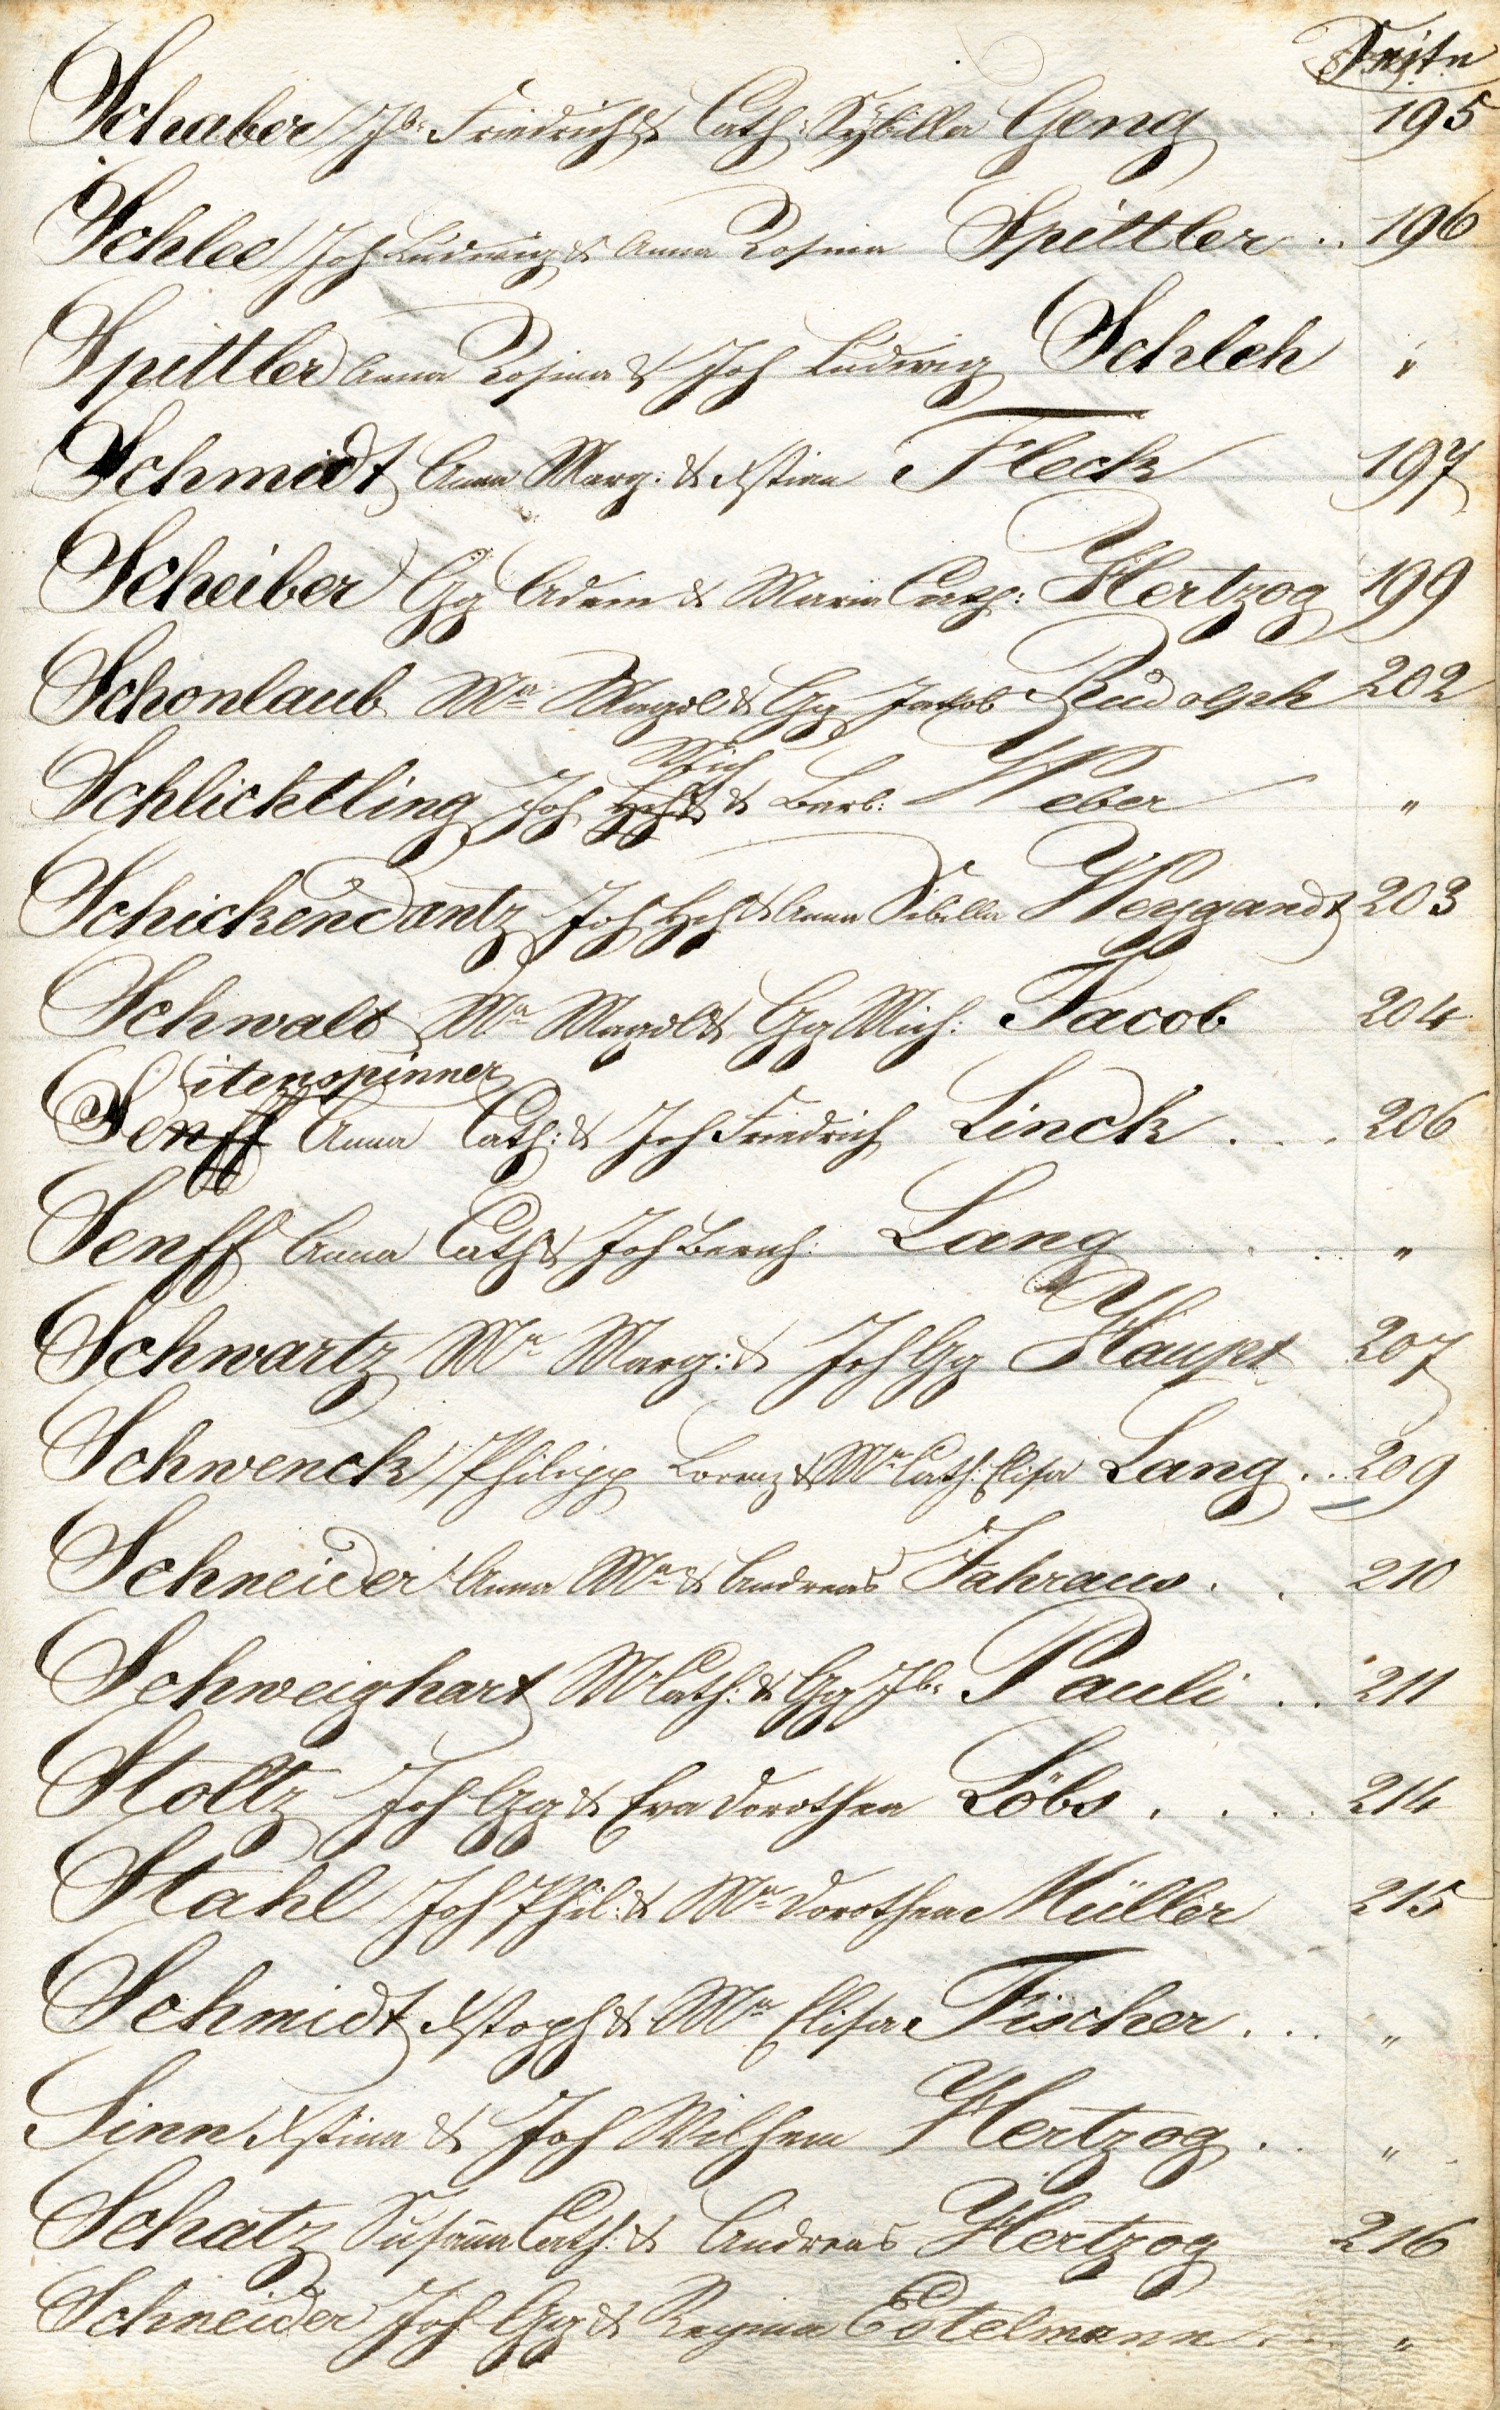 Seite
Schaber Jb. Friedrich & Cath: Sybilla Geng 195
Schlee Joh Ludwig & Anna Rosina Spittler .. 196
Spittler Anna Rosina & Joh Ludwig Schleh "
Schmidt Anna Marg: & Xstian Fleck 197
Scheiber Gg Adam & Maria Cath: Hertzog 199
Schonlaub Ma Magdl & Gg Jakob Rudolph 202
Mich
Schlicktling Joh Hch & Barb: Weber "
Schickendantz Joh Hch & Anna Sibilla Weygandt 203
Schwalt Ma Magdl & Gg Mich: Jacob 204
eitenspinner
Senff Anna Cath: & Joh Friedrich Linck . . . 206
Senff Anna Cath & Joh Bernh: Lang . . "
Schwartz Ma Marg: & Joh Gg Haupt 207
Schwenck Philipp Lorenz & Ma Cath: Elisa Lang .. 209
Schneider Anna Ma & Andreas Fahraus . . 210
Schweighart M Cath: & Gg Jb. Pauli . . 211
Stoltz Joh Gg & Eva Dorothea Löbs . . . . 214
Stahl Joh Phil: & Ma Dorothea Müller 215
Schmidt Xstoph & Ma Elisa Fischer . . . "
Sinn Xstina & Joh Wilhem Hertzog . . "
Schatz Susan̄a Cath: & Andreas Hertzog 216
Schneider Joh Gg & Regina Estelmann . . . "